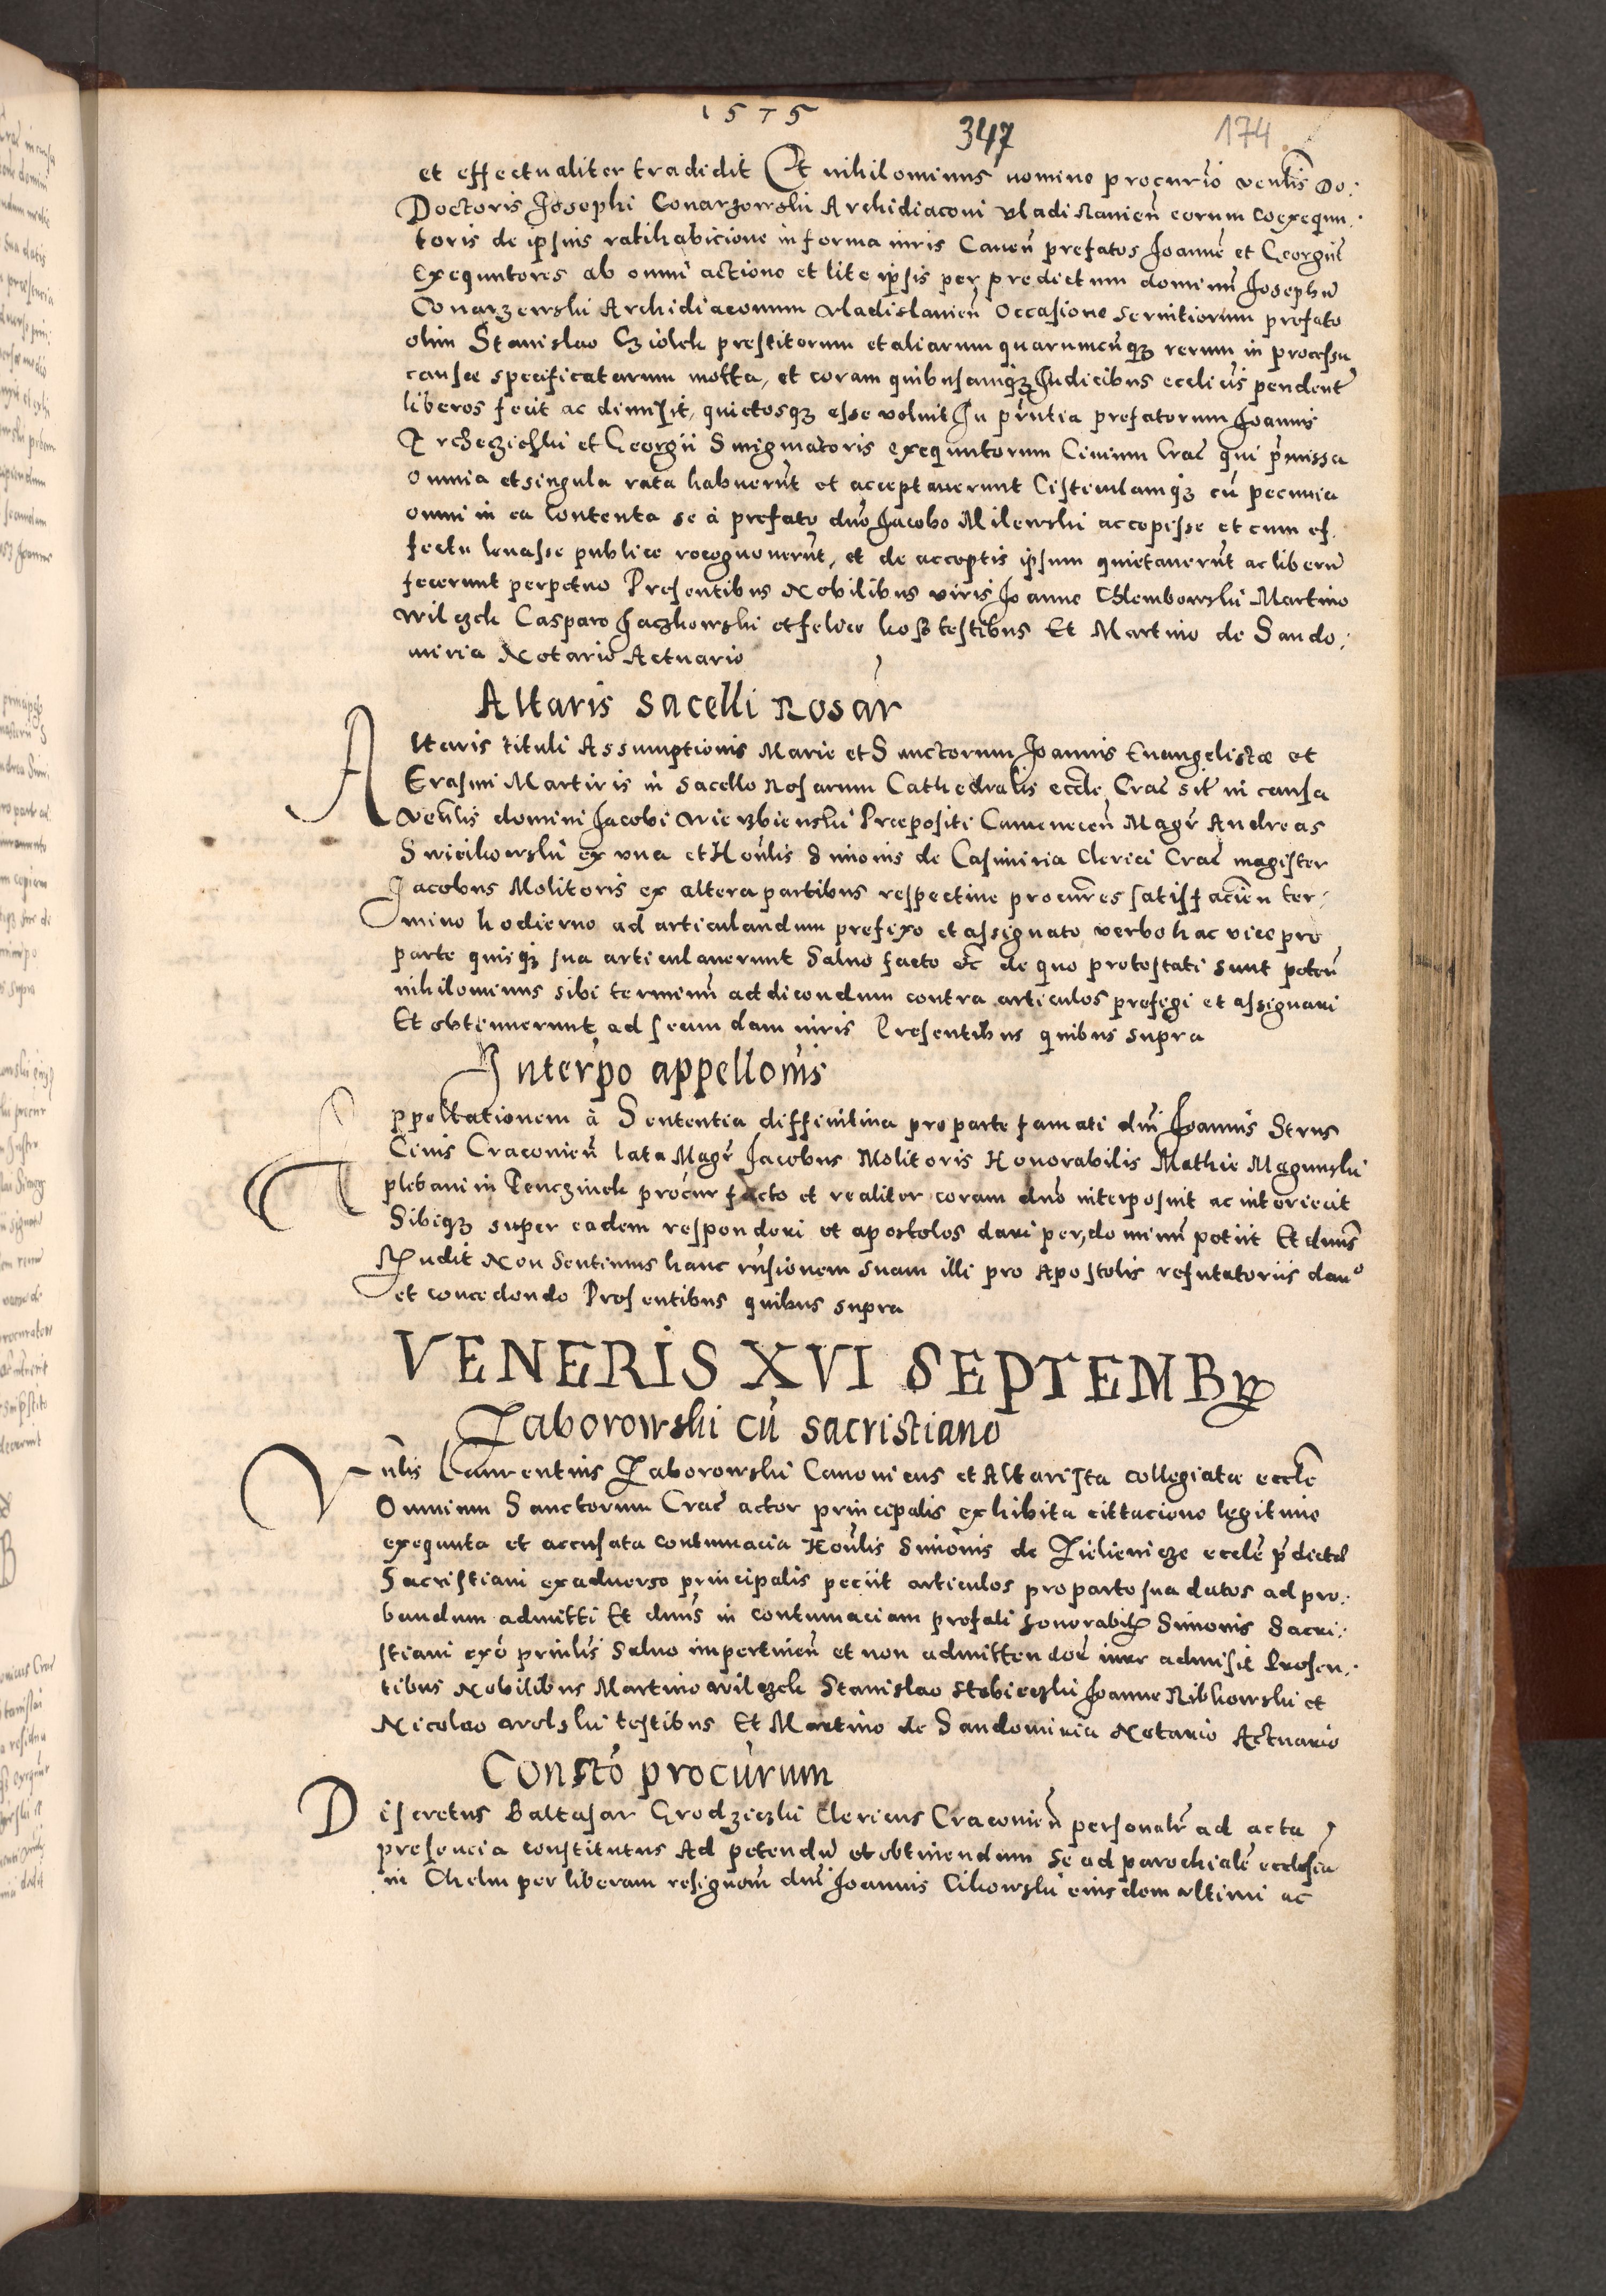 1575
347 174
et effectualiter tradidit Et nihilominus nomine procurio venlis Do:
Doctoris Josephi Conarzewski Archidiaconi Vladislavien eorum coexequu
toris de ipsius ratihabicione in forma iuris Caven prefatos Joanne et Georgiu
Exequutores ab omni actione et lite ipsis per predictum dominu Josephu
Conarzewski Archidiaconum Vladislavien Occasione servitiorum prefato
olim Stanislao Cziolek prestitorum et aliarum quarumcunqz rerum in processu
causae specificatarum motta, et coram quibuscunqz Judicibus eccliis pendente
liberos fecit ac dimisit, quietosqz esse voluit In prntia prefatorum Joannis
et Georgii Smigmatoris exequutorum Civium Crac qui pmissa
omnia et singula rata habuerut et acceptaverunt Cistemlamqz cu pecunia
omni in ea contenta se à prefato dno Jacobo Milewski accepisse et cum ef
fectu levasse publice recognoverut, et de acceptis ipsum quietaverut ac liberu
fecerunt perpetuo Presentibus Nobilibus viris Joanne Chlembowski Martino
Wilczek Casparo Jaczkowski et felice kosz testibus Et Martino de Sando:
miria Notario Actuario
Altaris sacelli Rosar
Altaris tituli Assumptionis Marie et Sanctorum Joannis Evangelistae et
Erasmi Martiris in sacello Rosarum Cathedralis eccle Crac sit in causa
venlis domini Jacobi Wierzbienski Praepositi Camenecen Magr Andreas
Swieikowski ex una et Honlis Simonis de Casimiria Clerici Crac magister
Jacobus Molitoris ex altera partibus respective procures satisfacien ter
mino hodierno ad articulandum prefixo et assignato verbo hac vice pro
parte quisqz sua articulaverunt Salvo facto etc de quo protestati sunt peten
nihilominus sibi terminu ad dicendum contra articulos prefigi et assignari
Et obtinuerunt ad secundam iuris Presentibus quibus supra
Interpo appellonis
Appellationem à Sententia diffinitiva pro parte famati dni Joannis Strus
Civis Cracovien lata Magr Jacobus Molitoris Honorabilis Mathie Magunski
plebani in Tenczinek procur facto et realiter coram dno interposuit ac interiecit
Sibiqz super eadem responderi et apostolos dari per dominu petiit Et dnus
Rndit Non Sentimus hanc rnsionem suam illi pro Apostolis refutatoriis dano
et concedendo Presentibus quibus supra
VENERIS XVI SEPTEMBR
Zaborowski cu sacristiano
Vnlis Laurentius Zaborowski Canonicus et Altarista collegiatae eccle
Omnium Sanctorum Crac actor principalis exhibita cittacione legitime
exequuta et accusata contumacia Honlis Simonis de Zielienicze eccle pdictae
Sacristiani ex adverso principalis peciit articulos pro parte sua datos ad pro
bandum admitti Et dnus in contumaciam prefati honorabilis Simonis Sacri
stiani ex pnlis Salvo impertinen et non admittendor iure admisit Presen
tibus Nobilibus Martino Wilczek Stanislao Stobieczki Joanne Ribkowski et
Nicolao Wolski testibus Et Martino de Sandomiria Notario Actuario
Constō procurum
Discretus Baltasar Grodzieczki Clericus Cracovien personalr ad acta
presencia constitutus Ad petendu et obtinendum Se ad parochiale ecclesia
in Chelm per liberam resignom dni Joannis Cikowski eius dem ultimi ac